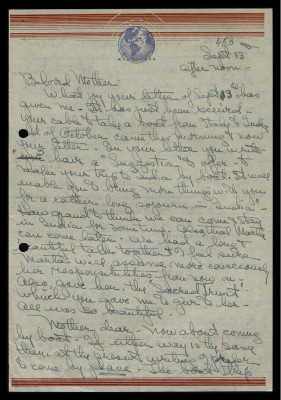 Sept 13
after noon -
Beloved Mother -
What joy your letter of Sept 3rd has
given me - It has just been received -
your cable to take a boat from Italy to India
end of October came this morning & now
your letter - In your letter you write
have a "Suggestion" to offer - to
make your trip to India by boat. It will
enable you to bring more things with you
for a rather long sojourn in "India" -
How grand to think we can come & stay
in India for sometime - Also, that
can come later - We had a long &
beautiful talk together & I feel sure
will assume more consciously
her responsibilities from now on -
Also, I gave her, the "Sacred Trust"
which you gave me to give to her -
all was so beautiful -
Mother dear - Now about coming
by boat - If either way is the same
then at the present writing I prefer
to come by plane - The boat trip